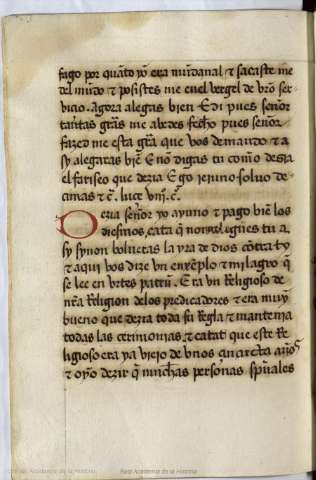 fago por quãto yo era mũdanal ⁊ sacaste me
del mũdo ⁊ posistes me en el vergel de vr̃o ser
vicio. Agora alegas bien E di pues señor
tantas grãs me abedes fecho pues señor
fazed me esta grã que vos demando ⁊ a
sy alegaras biẽ E nõ digas tu como desia
el fariseo que dezia Ego jejuno soluo de
cimas ⁊ c̃. luce
Dezia señor yo ayuno ⁊ pago biẽ los
diesmos, cata q̃ non alegues tu a
sy synon boluerias la yra de dios cõtra ty
⁊ aqui vos dize vn enxẽplo ⁊ milagro q̃
se lee en vitas patrũ. Era vn Religioso de
nr̃a Religion delos predicadores ⁊ era muy
bueno que dezia toda su Regla ⁊ mantenia
todas las cerimonias. ⁊ catat que este Re
ligioso era ya viejo de vnos años
⁊ oyo dezir q̃ muchas personas sp̃uales
Real Academia de la Historia
Real Academia de la Historia